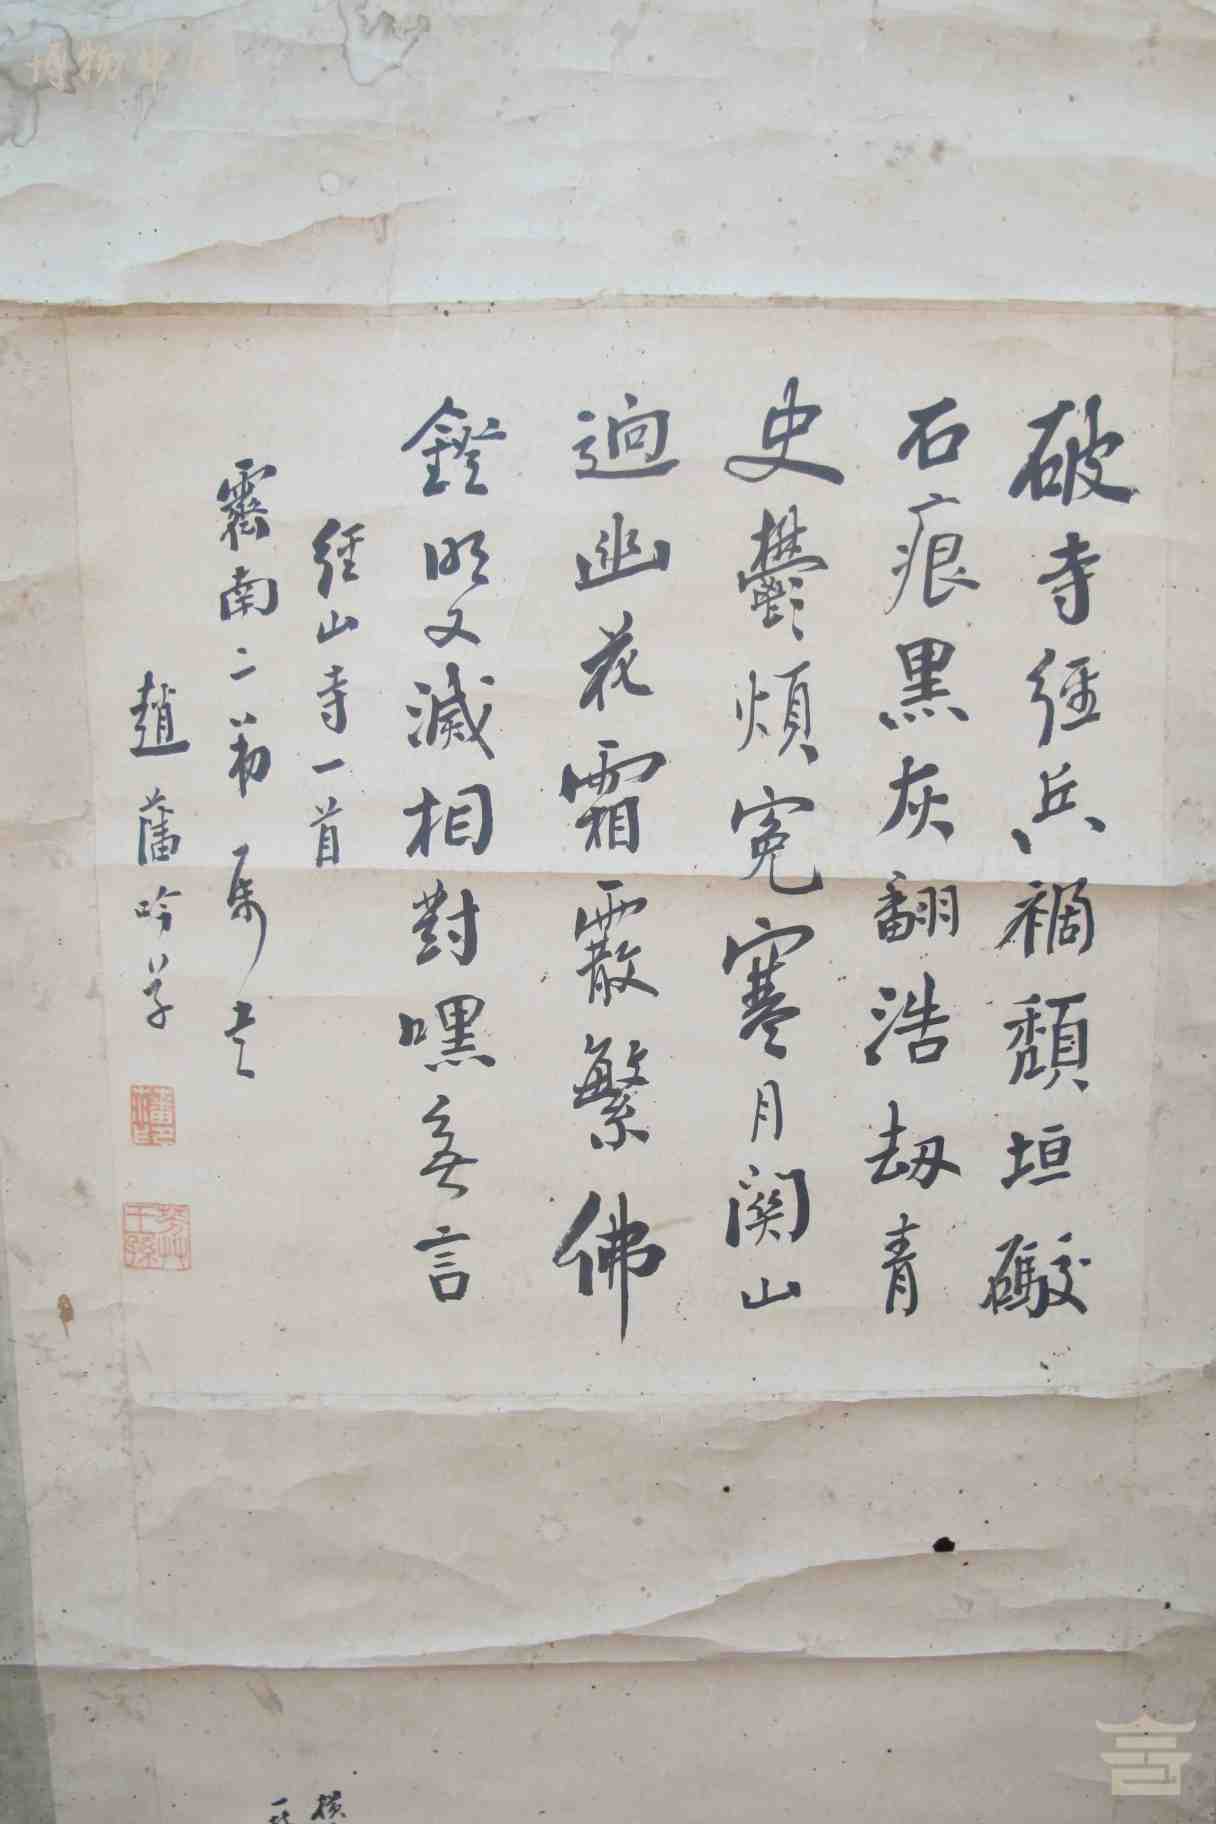 破寺經兵禍頹垣礮
石痕黑灰翻浩劫青
史鬱煩冤寒月關山
迥幽花霜霰繁佛
鐙明又滅相對嘿無言
經山寺一首
南二弟
趙藩吟草
博物中国